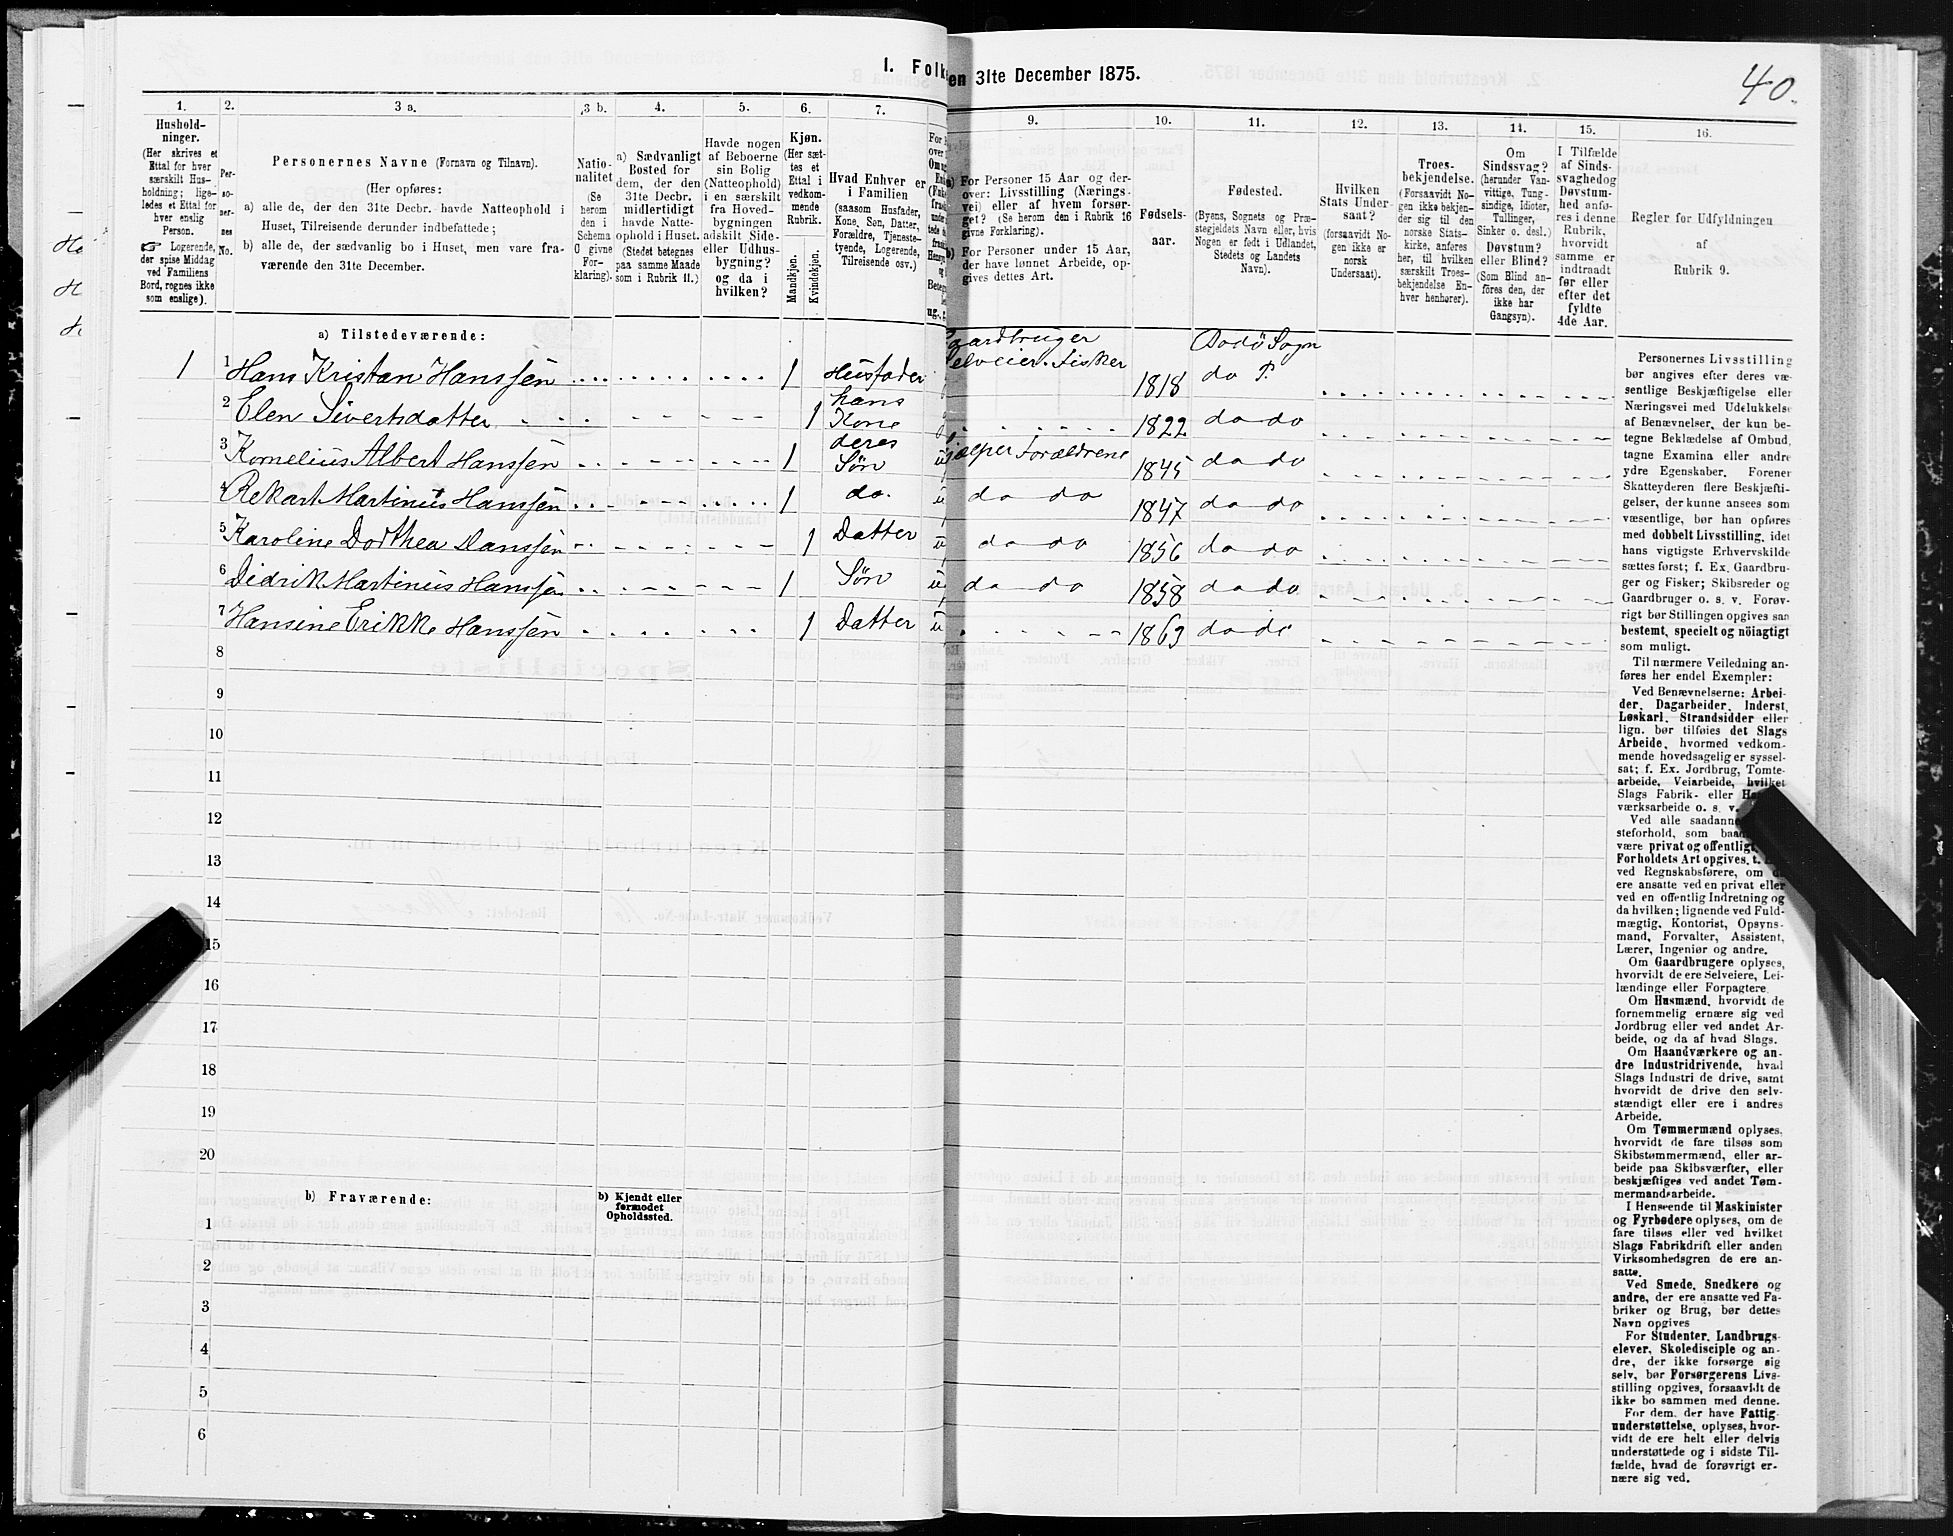 40.
1. Folk
en 31te December 1875.
1.
2.
3 a.
3 b.
4.
5.
6.
7.
9.
10.
11.
12.
13.
14.
15.
16.
Hushold-
ninger.
(Her skrives et
Ettal for hver
særskilt Hus-
holdning; lige-
ledes et Ettal for
hver enslig
Person.
☞ Logerende,
der spise Middag
ved Familiens
Bord, regnes ikke
som enslige).
Per-
so-
ner-
nes
No.
Personernes Navne (Fornavn og Tilnavn).
(Her opføres:
a) alle de, der den 31te Decbr. havde Natteophold i
Huset, Tilreisende derunder indbefattede;
b) alle de, der sædvanlig bo i Huset, men vare fra-
værende den 31te December.
Natio-
nalitet
(Se
herom
den i
Schema
G givne
For-
klaring).
a) Sædvanligt
Bosted for
dem, der den
31te Decbr.
midlertidigt
havde Natte-
ophold i Huset.
(Stedet betegnes
paa samme Maade
som i Rubrik 11.)
Havde nogen
af Beboerne
sin Bolig
(Natteophold)
i en særskilt
fra Hoved-
bygningen
adskilt Side-
eller Udhus-
bygning?
og da i
hvilken?
Kjøn.
(Her sæt-
tes et
Ettal i
vedkom-
mende
Rubrik.
Mandkjøn.
Kvindekjøn.
Hvad Enhver er
i Familien
(saasom Husfader,
Kone, Søn, Datter,
Forældre, Tjeneste-
tyende, Logerende,
Tilreisende osv.)
a) For Personer 15 Aar og der-
over: Livsstilling (Nærings-
vei) eller af hvem forsør-
get? (Se herom den i Rubrik 16
givne Forklaring).
b) For Personer under 15 Aar,
der have lønnet Arbeide, op-
gives dettes Art.
Fødsels-
aar.
Fødested.
(Byens, Sognets og Præ-
stegjeldets Navn eller, hvis
Nogen er født i Udlandet,
Stedets og Landets
Navn).
Hvilken
Stats Under-
saat?
(forsaavidt No-
gen ikke er
norsk
Undersaat).
Troes-
bekjendelse.
(Forsaavidt No-
gen ikke bekjen-
der sig til den
norske Stats-
kirke, anføres
her, til hvilken
særskilt Troes-
bekjendelse En-
hver henhører).
Om
Sindssvag?
(herunder Van-
vittige, Tung-
sindige, Idioter,
Tullinger,
Sinker o. desl.)
Døvstum?
eller Blind?
(Som Blind an-
føres den, der
ikke har
Gangsyn).
I Tilfælde
af Sinds-
svaghed og
Døvstum-
hed anfø-
res i denne
Rubrik,
hvorvidt
samme er
indtraadt
før eller
efter det
fyldte
4de Aar.
Regler for Udfyldningen
af
Rubrik 9.
a) Tilstedeværende:
Gaardbruger Bodö Sogn
1 1 Hans Kristan Hanssen 1 Husfader Selveier. Fisker 1818 do P.
2 Elen Sivertsdatter 1 hans Kone 1822 do do
3 Kornelius Albert Hanssen 1 deres Søn u hjælper Forældrene 1845 do do
4 Rekart Martinus Hanssen 1 do. u do do 1847 do do
5 Karoline Dorthea Danssen 1 Datter u do do 1856 do do
6 Didrik Martinus Hanssen 1 Søn u do do 1858 do do
7 Hansine Erikke Hanssen 1 Datter u 1863 do do
8
9
10
11
12
13
14
15
16
17
18
19
20
b) Fraværende:
b) Kjendt eller
formodet
Opholdssted.
1
2
3
4
5
6
Personernes Livsstilling
bør angives efter deres væ-
sentlige Beskjæftigelse eller
Næringsvei med Udelukkelse
af Benævnelser, der kun be-
tegne Beklædelse af Ombud,
tagne Examina eller andre
ydre Egenskaber. Forener
Skatteyderen flere Beskjæfti-
gelser, der kunne ansees som
væsentlige, bør han opføres
med dobbelt Livsstilling, idet
hans vigtigste Erhvervskilde
sættes først; f. Ex. Gaardbru-
ger og Fisker; Skibsreder og
Gaardbruger o. s. v. Forøv-
rigt bør Stillingen opgives saa
bestemt, specielt og nöiagtigt
som muligt.
Til nærmere Veiledning an-
føres her endel Exempler:
Ved Benævnelserne: Arbei-
der, Dagarbeider, Inderst,
Løskarl, Strandsidder eller
lign. bør tilføies det Slags
Arbeide, hvormed vedkom-
mende hovedsagelig er syssel-
sat; f. Ex. Jordbrug, Tomte-
arbeide, Veiarbeide, hvilket
Slags Fabrik- eller
værksarbeide o. s. v.
Ved alle saadanne
steforhold, som
være privat og offentligt,
Forholdets Art opgives, t.
ved Regnskabsførere, om
ere ansatte ved en privat eller
ved en offentlig Indretning og
da hvilken; lignende ved Fuld-
mægtig, Kontorist, Opsyns-
mand, Forvalter, Assistent,
Lærer, Ingeniør og andre.
Om Gaardbrugere oplyses,
hvorvidt de ere Selveiere, Lei-
lændinge eller Forpagtere.
Om Husmænd, hvorvidt de
fornemmelig ernære sig ved
Jordbrug eller ved andet Ar-
beide, og da af hvad Slags.
Om Haandværkere og an-
dre Industridrivende, hvad
Slags Industri de drive, samt
hvorvidt de drive den selv-
stændigt eller ere i andres
Arbeide.
Om Tømmermænd oplyses,
hvorvidt de fare tilsøs som
Skibstømmermænd, eller ar-
beide paa Skibsværfter, eller
beskjæftiges ved andet Tøm-
mermandsarbeide.
I Henseende til Maskinister
og Fyrbødere oplyses, om de
fare tilsøs eller ved hvilket
Slags Fabrikdrift eller anden
Virksomhedsgren de ere an-
satte.
Ved Smede, Snedkere og
andre, der ere ansatte ved Fa-
briker og Brug, bør dettes
Navn opgives
For Studenter, Landbrugs-
elever, Skoledisciple og an-
dre, der ikke forsørge sig
selv, bør Forsørgerens Livs-
stilling opgives, forsaavidt de
ikke bo sammen med denne.
For dem, der have Fattig-
understøttelse, oplyses, hvor-
vidt de ere helt eller delvis
understøttede og i sidste Til-
fælde, hvad de forøvrigt er-
nære sig ved.